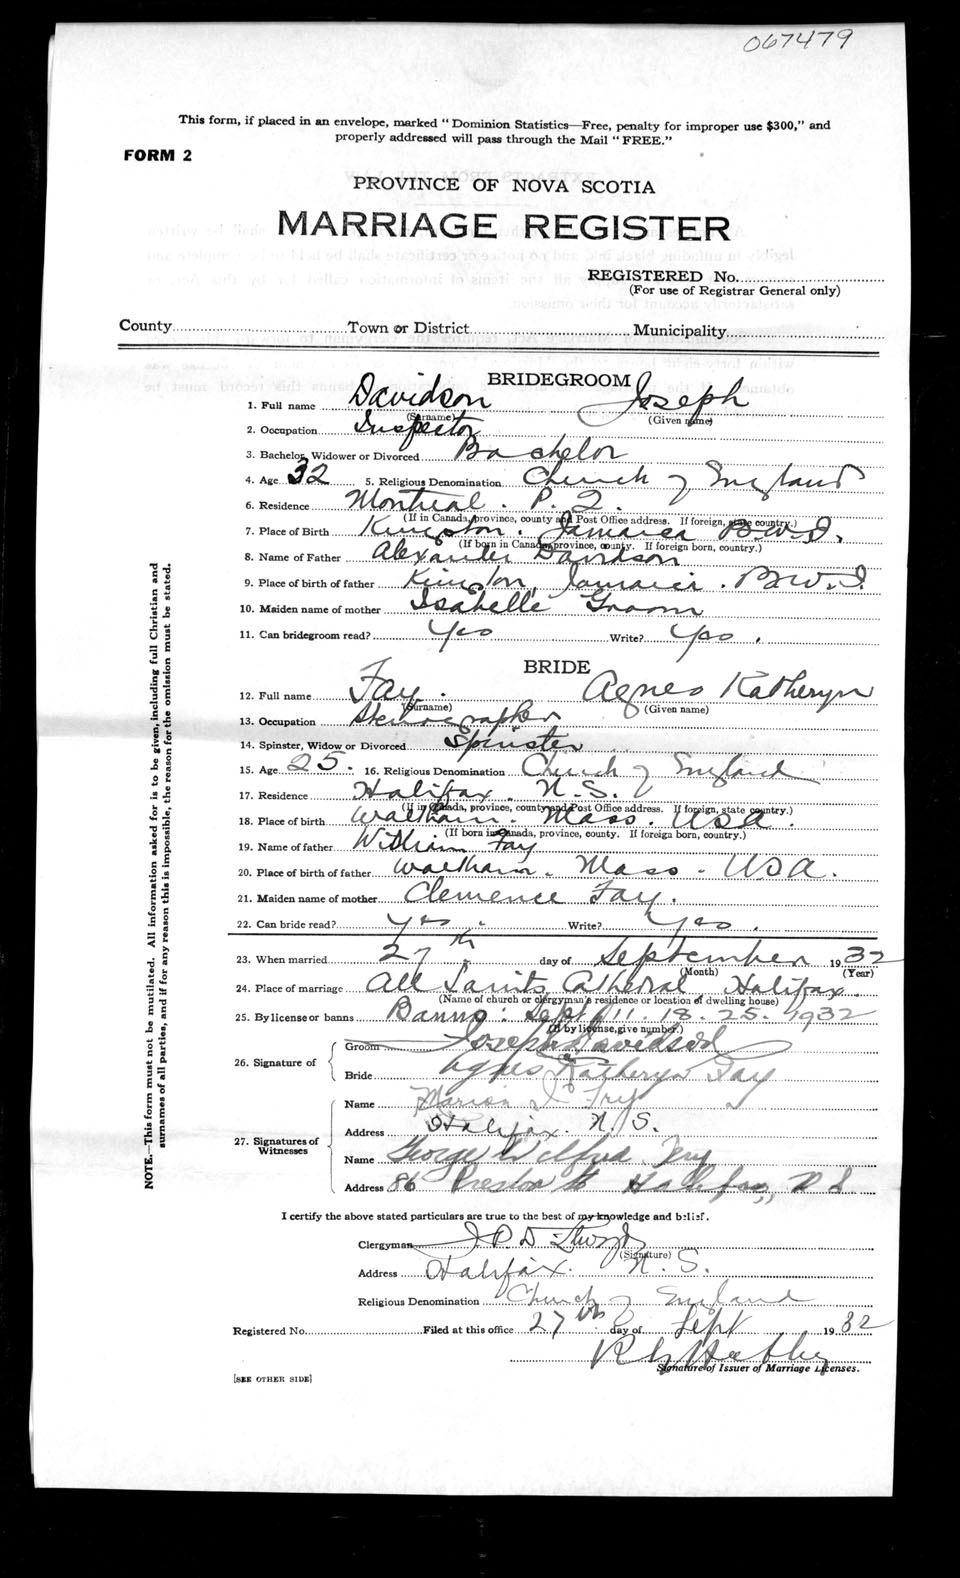 067479
This form, if placed in an envelope, marked " Dominion Statistics—Free, penalty for improper use $300," and
properly addressed will pass through the Mail " FREE."
FORM 2
PROVINCE OF NOVA SCOTIA
MARRIAGE REGISTER
REGISTERED No.
(For use of Registrar General only)
County Town or District Municipality
BRIDEGROOM
1. Full name Davidson Joseph
(Surname) (Given name)
2. Occupation Inspector
3. Bachelor, Widower or Divorced Bachelor
4. Age 32 5. Religious Denomination Church of England
6. Residence Montreal. P. Q.
(If in Canada, province, county and Post Office address. If foreign, state country.)
7. Place of Birth Kingston. Jamaica B.W.I.
(If born in Canada, province, county. If foreign born, country.)
8. Name of Father Alexander Davidson
9. Place of birth of father Kingston, Jamaica. B.W.I.
10. Maiden name of mother Isabelle Groom
11. Can bridegroom read? Yes Write? Yes.
BRIDE
12. Full name Fay. Agnes Katheryn
(Surname) (Given name)
13. Occupation Stenographer
14. Spinster, Widow or Divorced Spinster
15. Age 25. 16. Religious Denomination Church of England
17. Residence Halifax. N.S.
(If in Canada, province, county and Post Office address. If foreign, state country.)
18. Place of birth Waltham. Mass. USA.
(If born in Canada, province, county. If foreign born, country.)
19. Name of father William Fay
20. Place of birth of father Waltham. Mass. USA.
21. Maiden name of mother Clemence Fay.
22. Can bride read? Yes. Write? Yes.
23. When married 27th day of September 1932
(Month) (Year)
24. Place of marriage All Saints Cathedral Halifax.
(Name of church or clergyman's residence or location of dwelling house)
25. By license or banns Banns: Sept 11. 18. 25. 1932
(If by license, give number.)
26. Signature of
Groom Joseph Davidson
Bride Agnes Katheryn Fay
27. Signatures of Witnesses
Name Marion Fry
Address Halifax. N.S.
Name George Wilfred Fry
Address 86 Preston St Halifax, N S
I certify the above stated particulars are true to the best of my knowledge and belief.
Clergyman
(Signature)
Address Halifax. N. S.
Religious Denomination Church of England
Registered No. Filed at this office 27th day of Sept 1932
Signature of Issuer of Marriage Licenses.
[SEE OTHER SIDE]
NOTE.—This form must not be mutilated. All information asked for is to be given, including full Christian and
surnames of all parties, and if for any reason this is impossible, the reason for the omission must be stated.